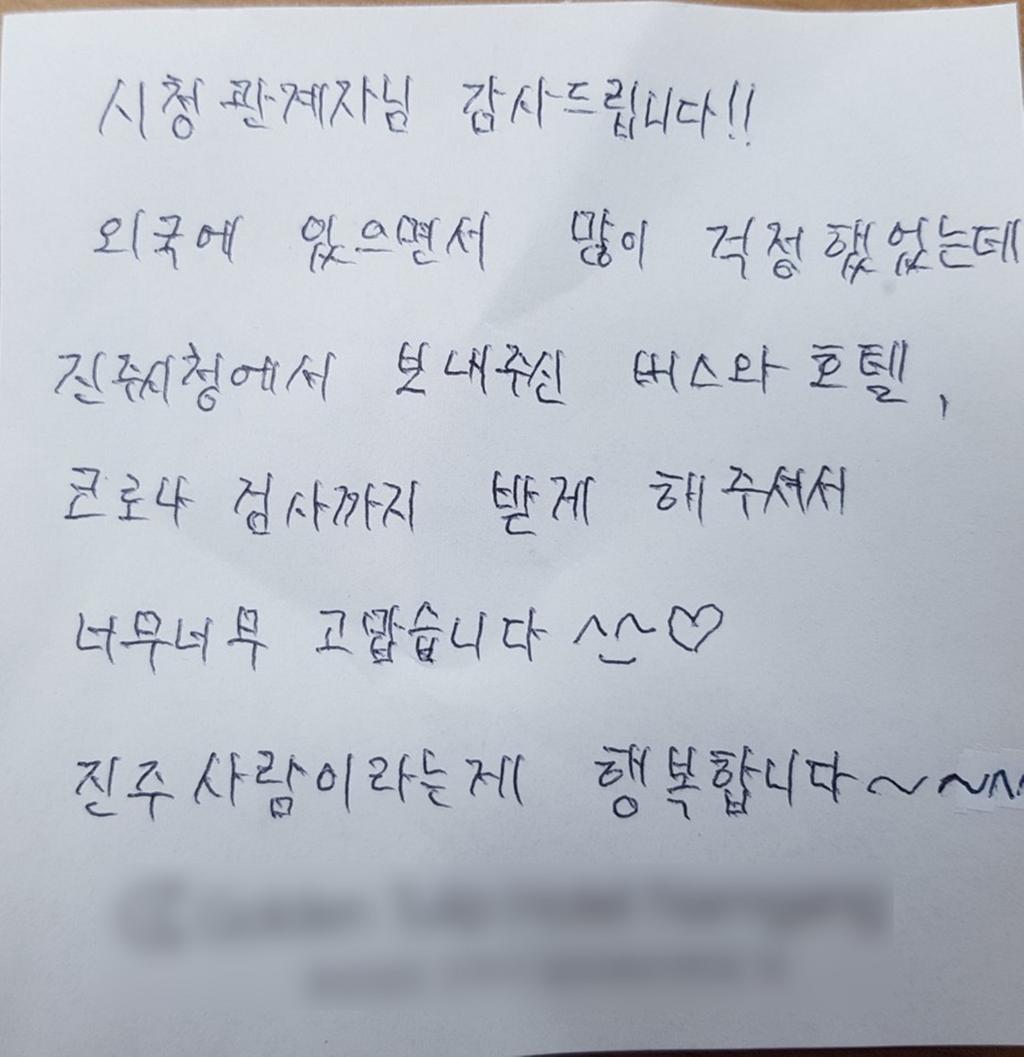 시청관계자님 감사드립니다!!
외국에 있으면서 많이 걱정했었는데
진주시청에서 보내주신 버스와 호텔,
코로나 검사까지 받게 해주셔서
너무너무 고맙습니다 ^_^♡
진주사람이라는게 행복합니다~~^^